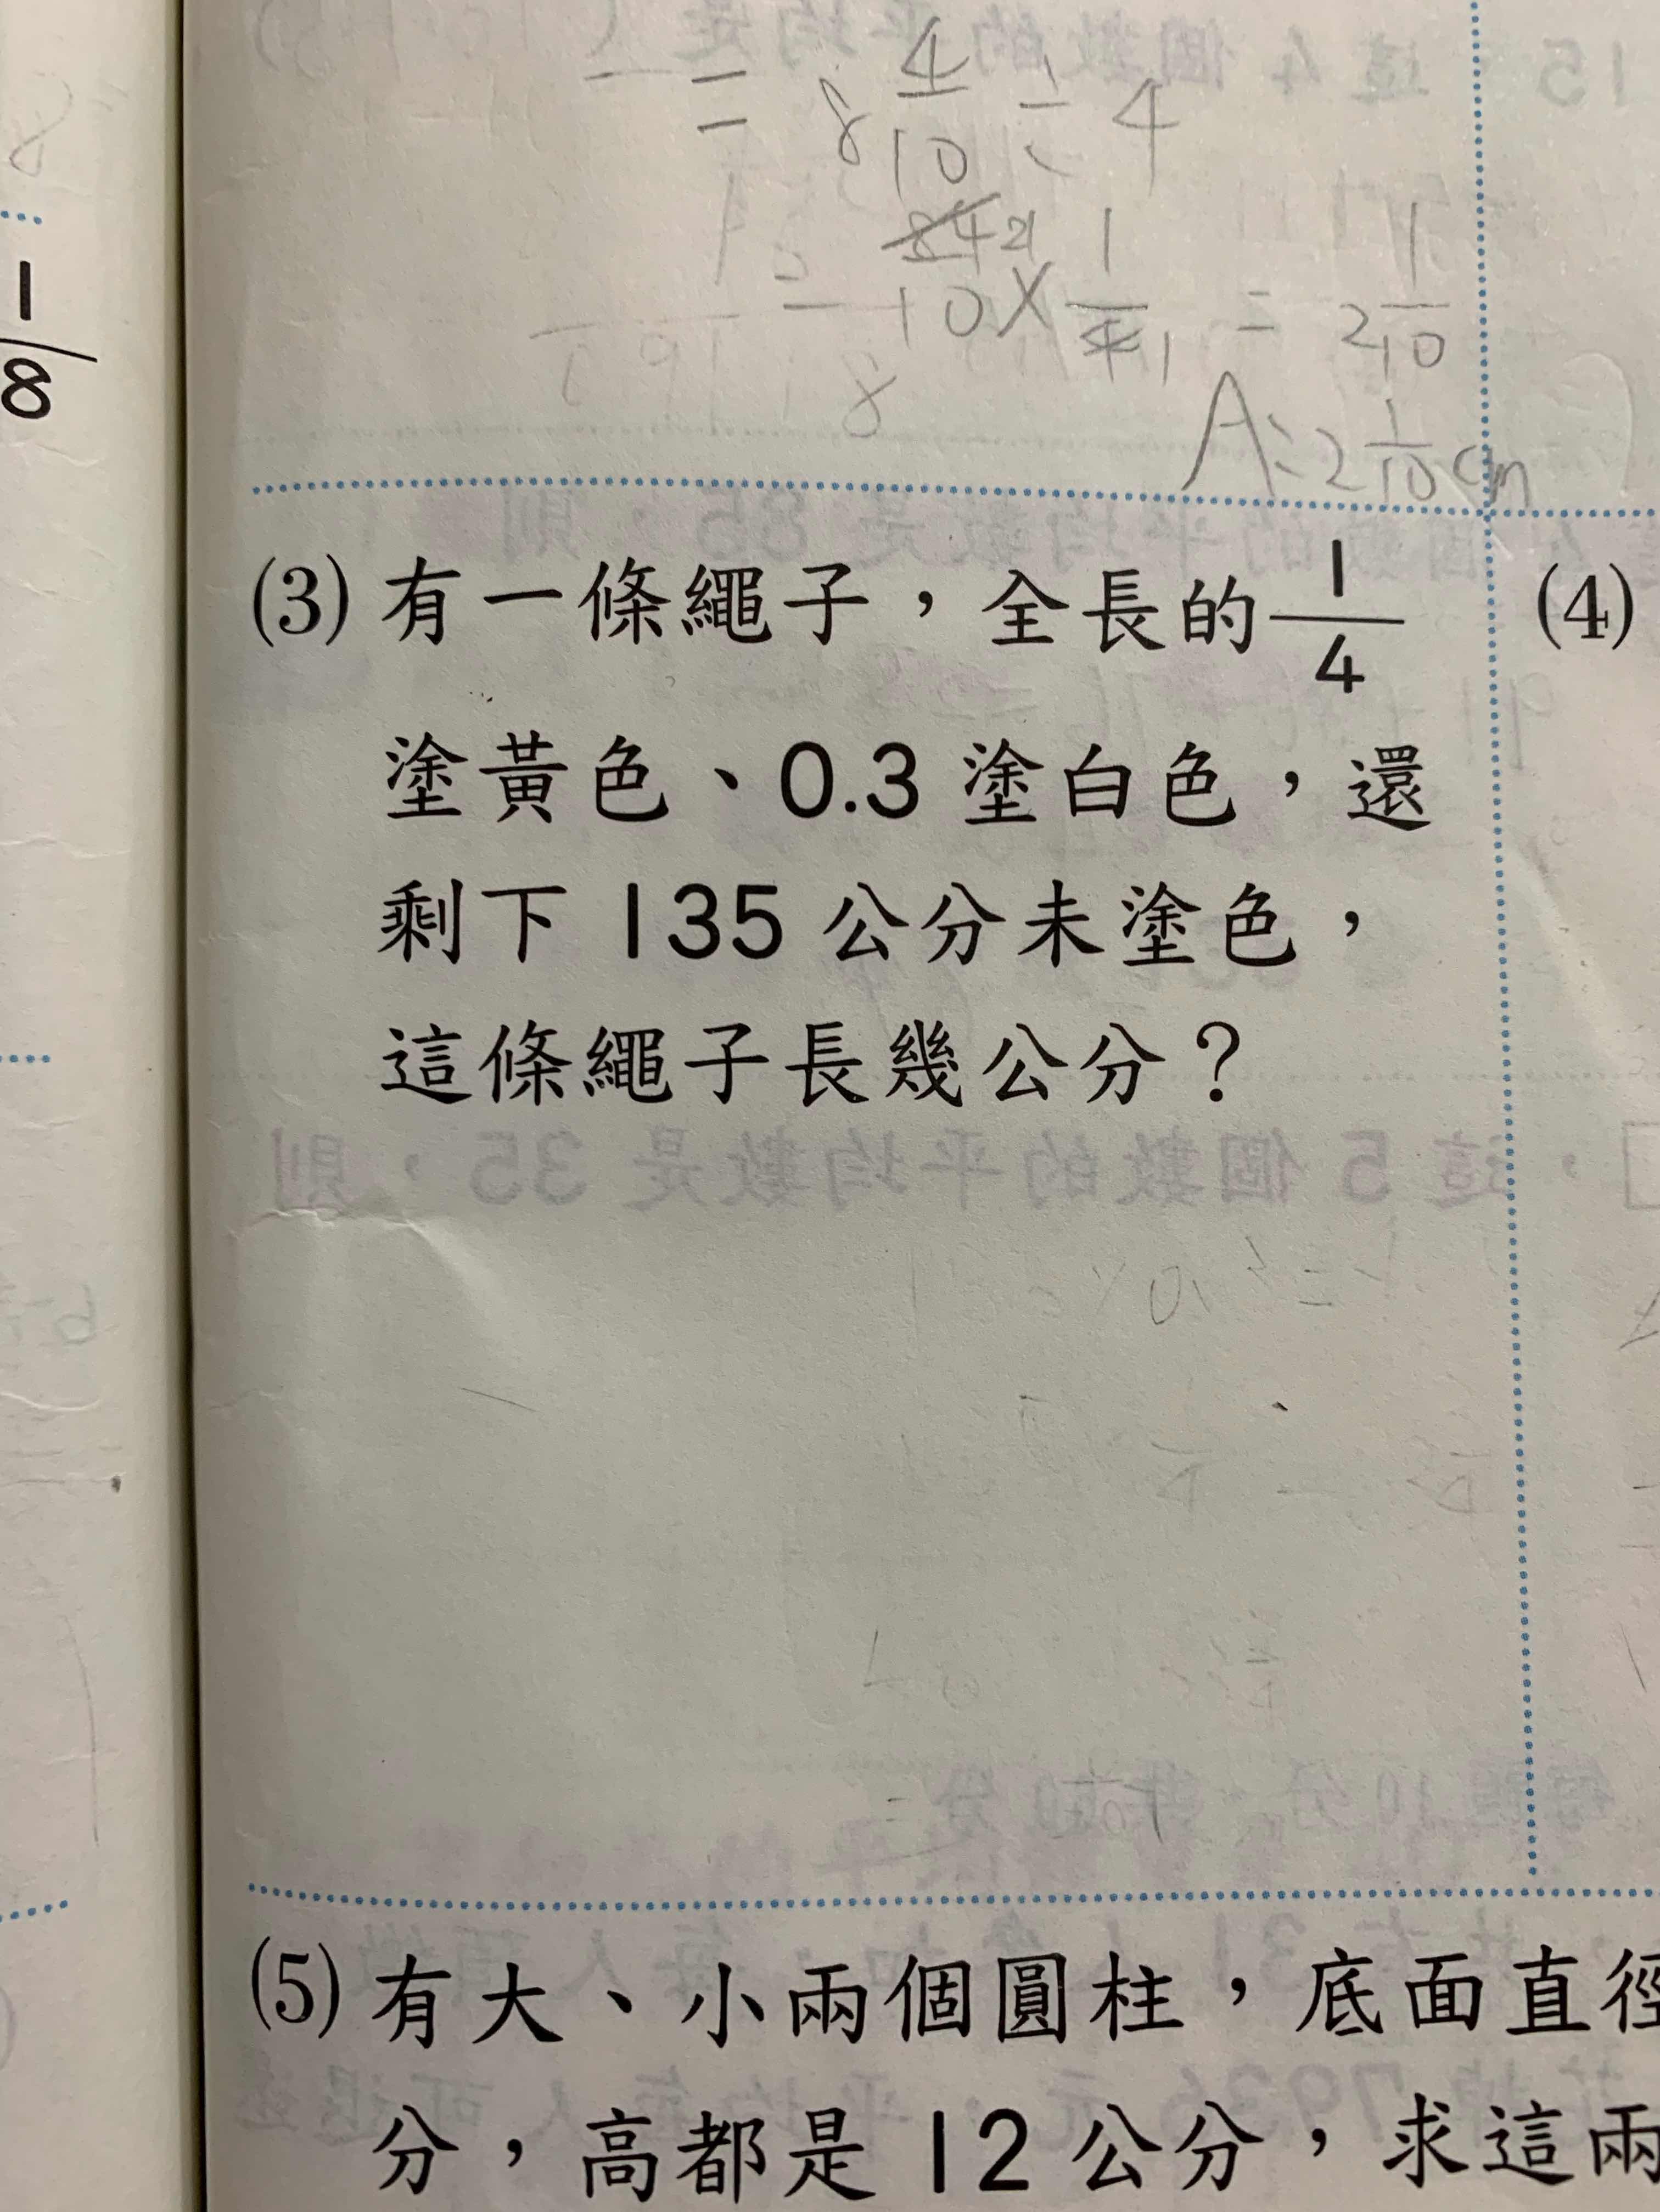 = 8 4/10 ÷ 4
= 84 21/10 × 1/4 1 = 2 1/10
A: 2 1/10 cm
1/8
(3) 有一條繩子，全長的 1/4
(4)
塗黃色、0.3 塗白色，還
剩下 135 公分未塗色，
這條繩子長幾公分？
(5) 有大、小兩個圓柱，底面直徑
分，高都是 12 公分，求這兩